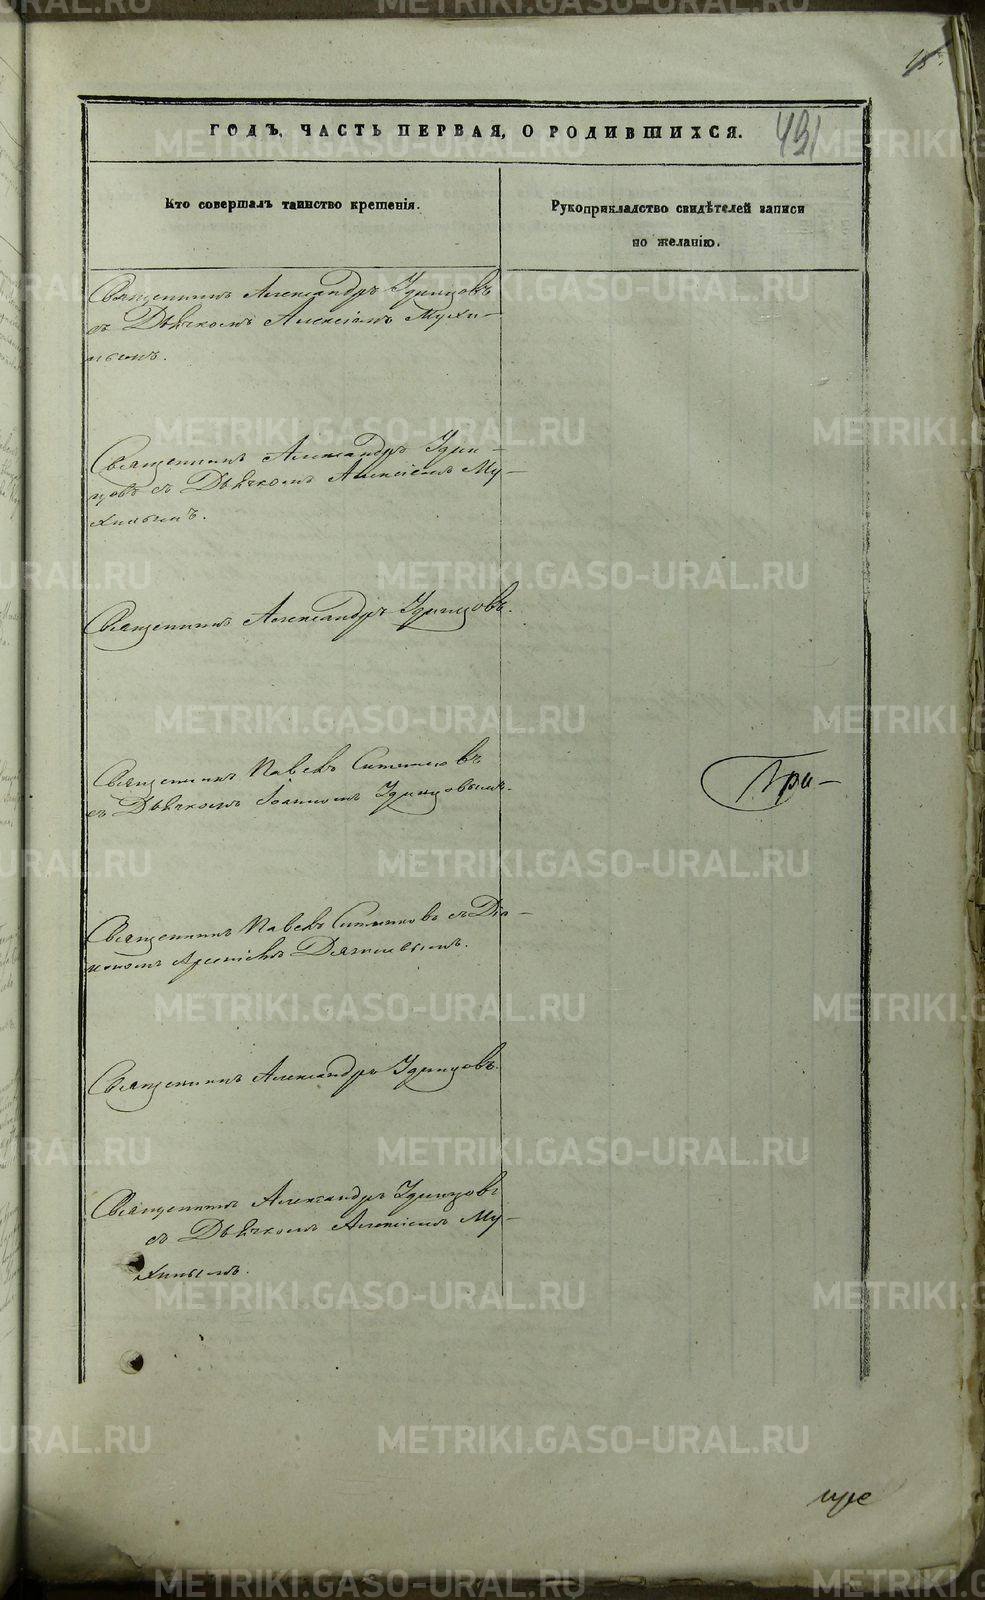 15
ГОДЪ, ЧАСТЬ ПЕРВАЯ, О РОДИВШИХСЯ.
491
Кто совершалъ таинство крещенія.
Рукоприкладство свидѣтелей записи
по желанію.
Священникъ Александръ Удинцовъ
съ Дьячкомъ Алексіемъ Мухи-
нымъ.
Священникъ Александръ Удин-
цовъ съ Дьячкомъ Алексіемъ Му-
хинымъ.
Священникъ Александръ Удинцовъ.
Священникъ Павелъ Ситниковъ
съ Дьячкомъ Іоанномъ Удинцовымъ.
При-
Священникъ Павелъ Ситниковъ съ Діа-
кономъ Арсеніемъ
Священникъ Александръ Удинцовъ.
Священникъ Александръ Удинцовъ
съ Дьячкомъ Алексіемъ Му-
хинымъ.
METRIKI.GASO-URAL.RU